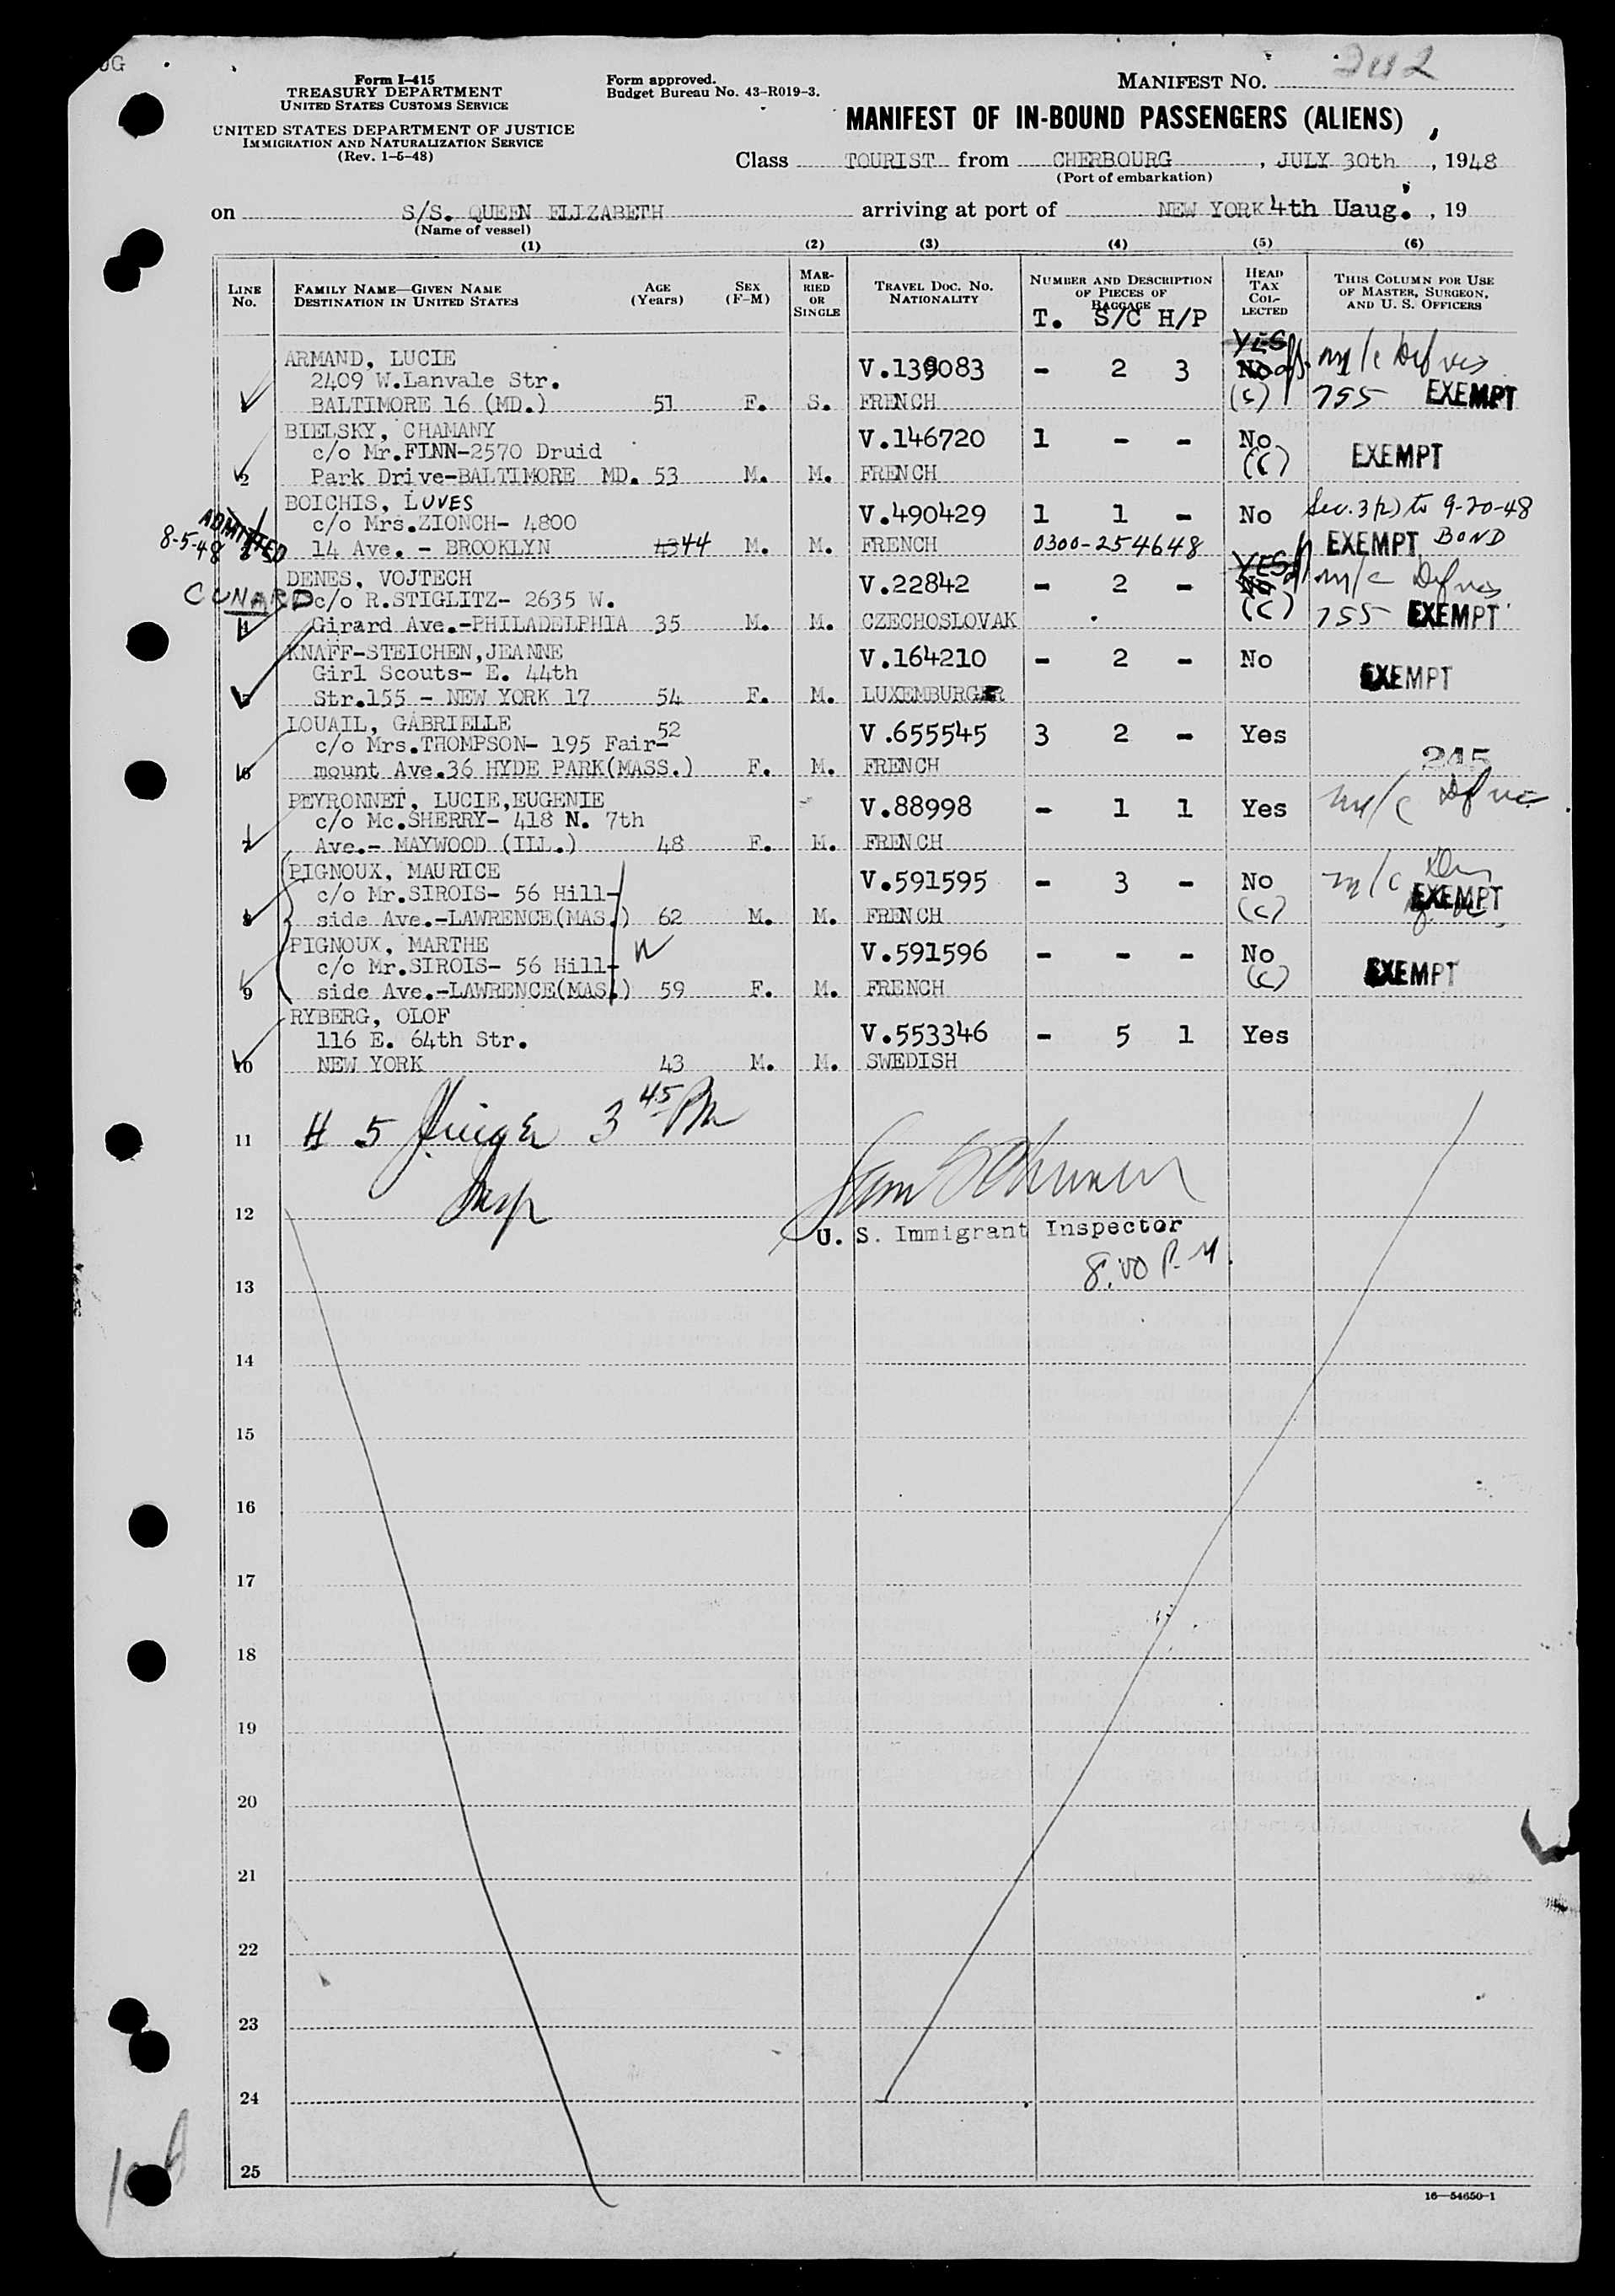 Form I-415
TREASURY DEPARTMENT
UNITED STATES CUSTOMS SERVICE
UNITED STATES DEPARTMENT OF JUSTICE
IMMIGRATION AND NATURALIZATION SERVICE
(Rev. 1-6-48)
Form approved.
Budget Bureau No. 43-R019-3.
MANIFEST NO.
MANIFEST OF IN-BOUND PASSENGERS (ALIENS)
Class TOURIST from CHERBOURG , JULY 30th , 1948
(Port of embarkation)
on S/S. QUEEN ELIZABETH arriving at port of NEW YORK 4th Uaug. , 19
(Name of vessel)
(1) (2) (3) (4) (5) (6)
LINE No. FAMILY NAME—GIVEN NAME DESTINATION IN UNITED STATES AGE (Years) SEX (F-M) MARRIED OR SINGLE TRAVEL DOC. NO. NATIONALITY NUMBER AND DESCRIPTION OF PIECES OF BAGGAGE HEAD TAX COLLECTED THIS COLUMN FOR USE OF MASTER, SURGEON, AND U. S. OFFICERS
T. S/C H/P
ARMAND, LUCIE YES
2409 W.Lanvale Str. V.139083 - 2 3 No m/c
BALTIMORE 16 (MD.) 51 F. S. FRENCH (c) 755 EXEMPT
BIELSKY, CHAMANY V.146720 1 - - No
c/o Mr.FINN-2570 Druid
2 Park Drive-BALTIMORE MD. 53 M. M. FRENCH (c) EXEMPT
BOICHIS, LUVES Sec. 3(2) to 9-20-48
ADMITTED c/o Mrs.ZIONCH- 4800 V.490429 1 1 - No
8-5-48 14 Ave. - BROOKLYN 43 44 M. M. FRENCH 0300-254648 EXEMPT BOND
DENES, VOJTECH V.22842 - 2 - YES No m/c
CUNARD c/o R.STIGLITZ- 2635 W. (c)
4 Girard Ave.-PHILADELPHIA 35 M. M. CZECHOSLOVAK 755 EXEMPT
KNAFF-STEICHEN,JEANNE V.164210 - 2 - No
Girl Scouts- E. 44th EXEMPT
5 Str.155 - NEW YORK 17 54 F. M. LUXEMBURGER
LOUAIL, GABRIELLE 52
c/o Mrs.THOMPSON- 195 Fair- V.655545 3 2 - Yes
6 mount Ave.36 HYDE PARK(MASS.) F. M. FRENCH 245
PEYRONNET, LUCIE,EUGENIE V.88998 - 1 1 Yes m/c
c/o Mc.SHERRY- 418 N. 7th
7 Ave.- MAYWOOD (ILL.) 48 F. M. FRENCH
PIGNOUX, MAURICE V.591595 - 3 - No m/c
c/o Mr.SIROIS- 56 Hill- EXEMPT
8 side Ave.-LAWRENCE(MAS.) 62 M. M. FRENCH (c)
PIGNOUX, MARTHE V.591596 - - - No
c/o Mr.SIROIS- 56 Hill- (c) EXEMPT
9 side Ave.-LAWRENCE(MAS.) 59 F. M. FRENCH
RYBERG, OLOF
116 E. 64th Str. V.553346 - 5 1 Yes
10 NEW YORK 43 M. M. SWEDISH
11 H 5 3 45 PM
12 Insp
U. S. Immigrant Inspector
8:00 P.M.
13
14
15
16
17
18
19
20
21
22
23
24
25
16—54650-1